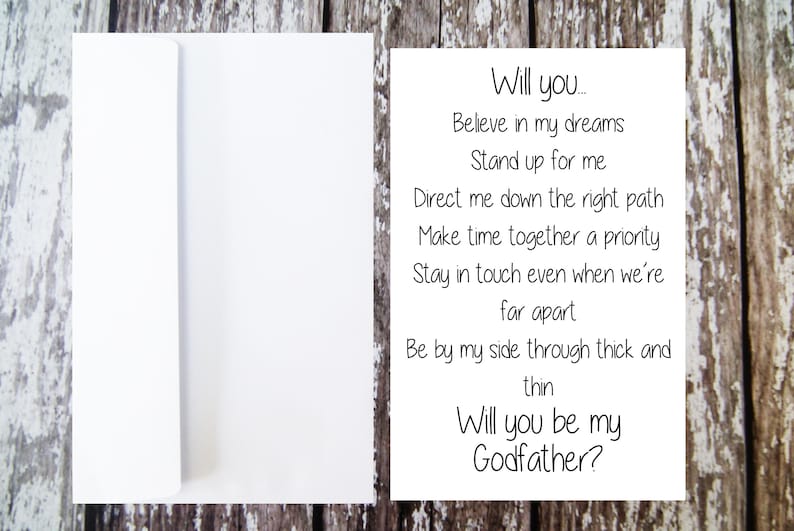 Will you...
Believe in my dreams
Stand up for me
Direct me down the right path
Make time together a priority
Stay in touch even when we're
far apart
Be by my side through thick and
thin
Will you be my
Godfather?